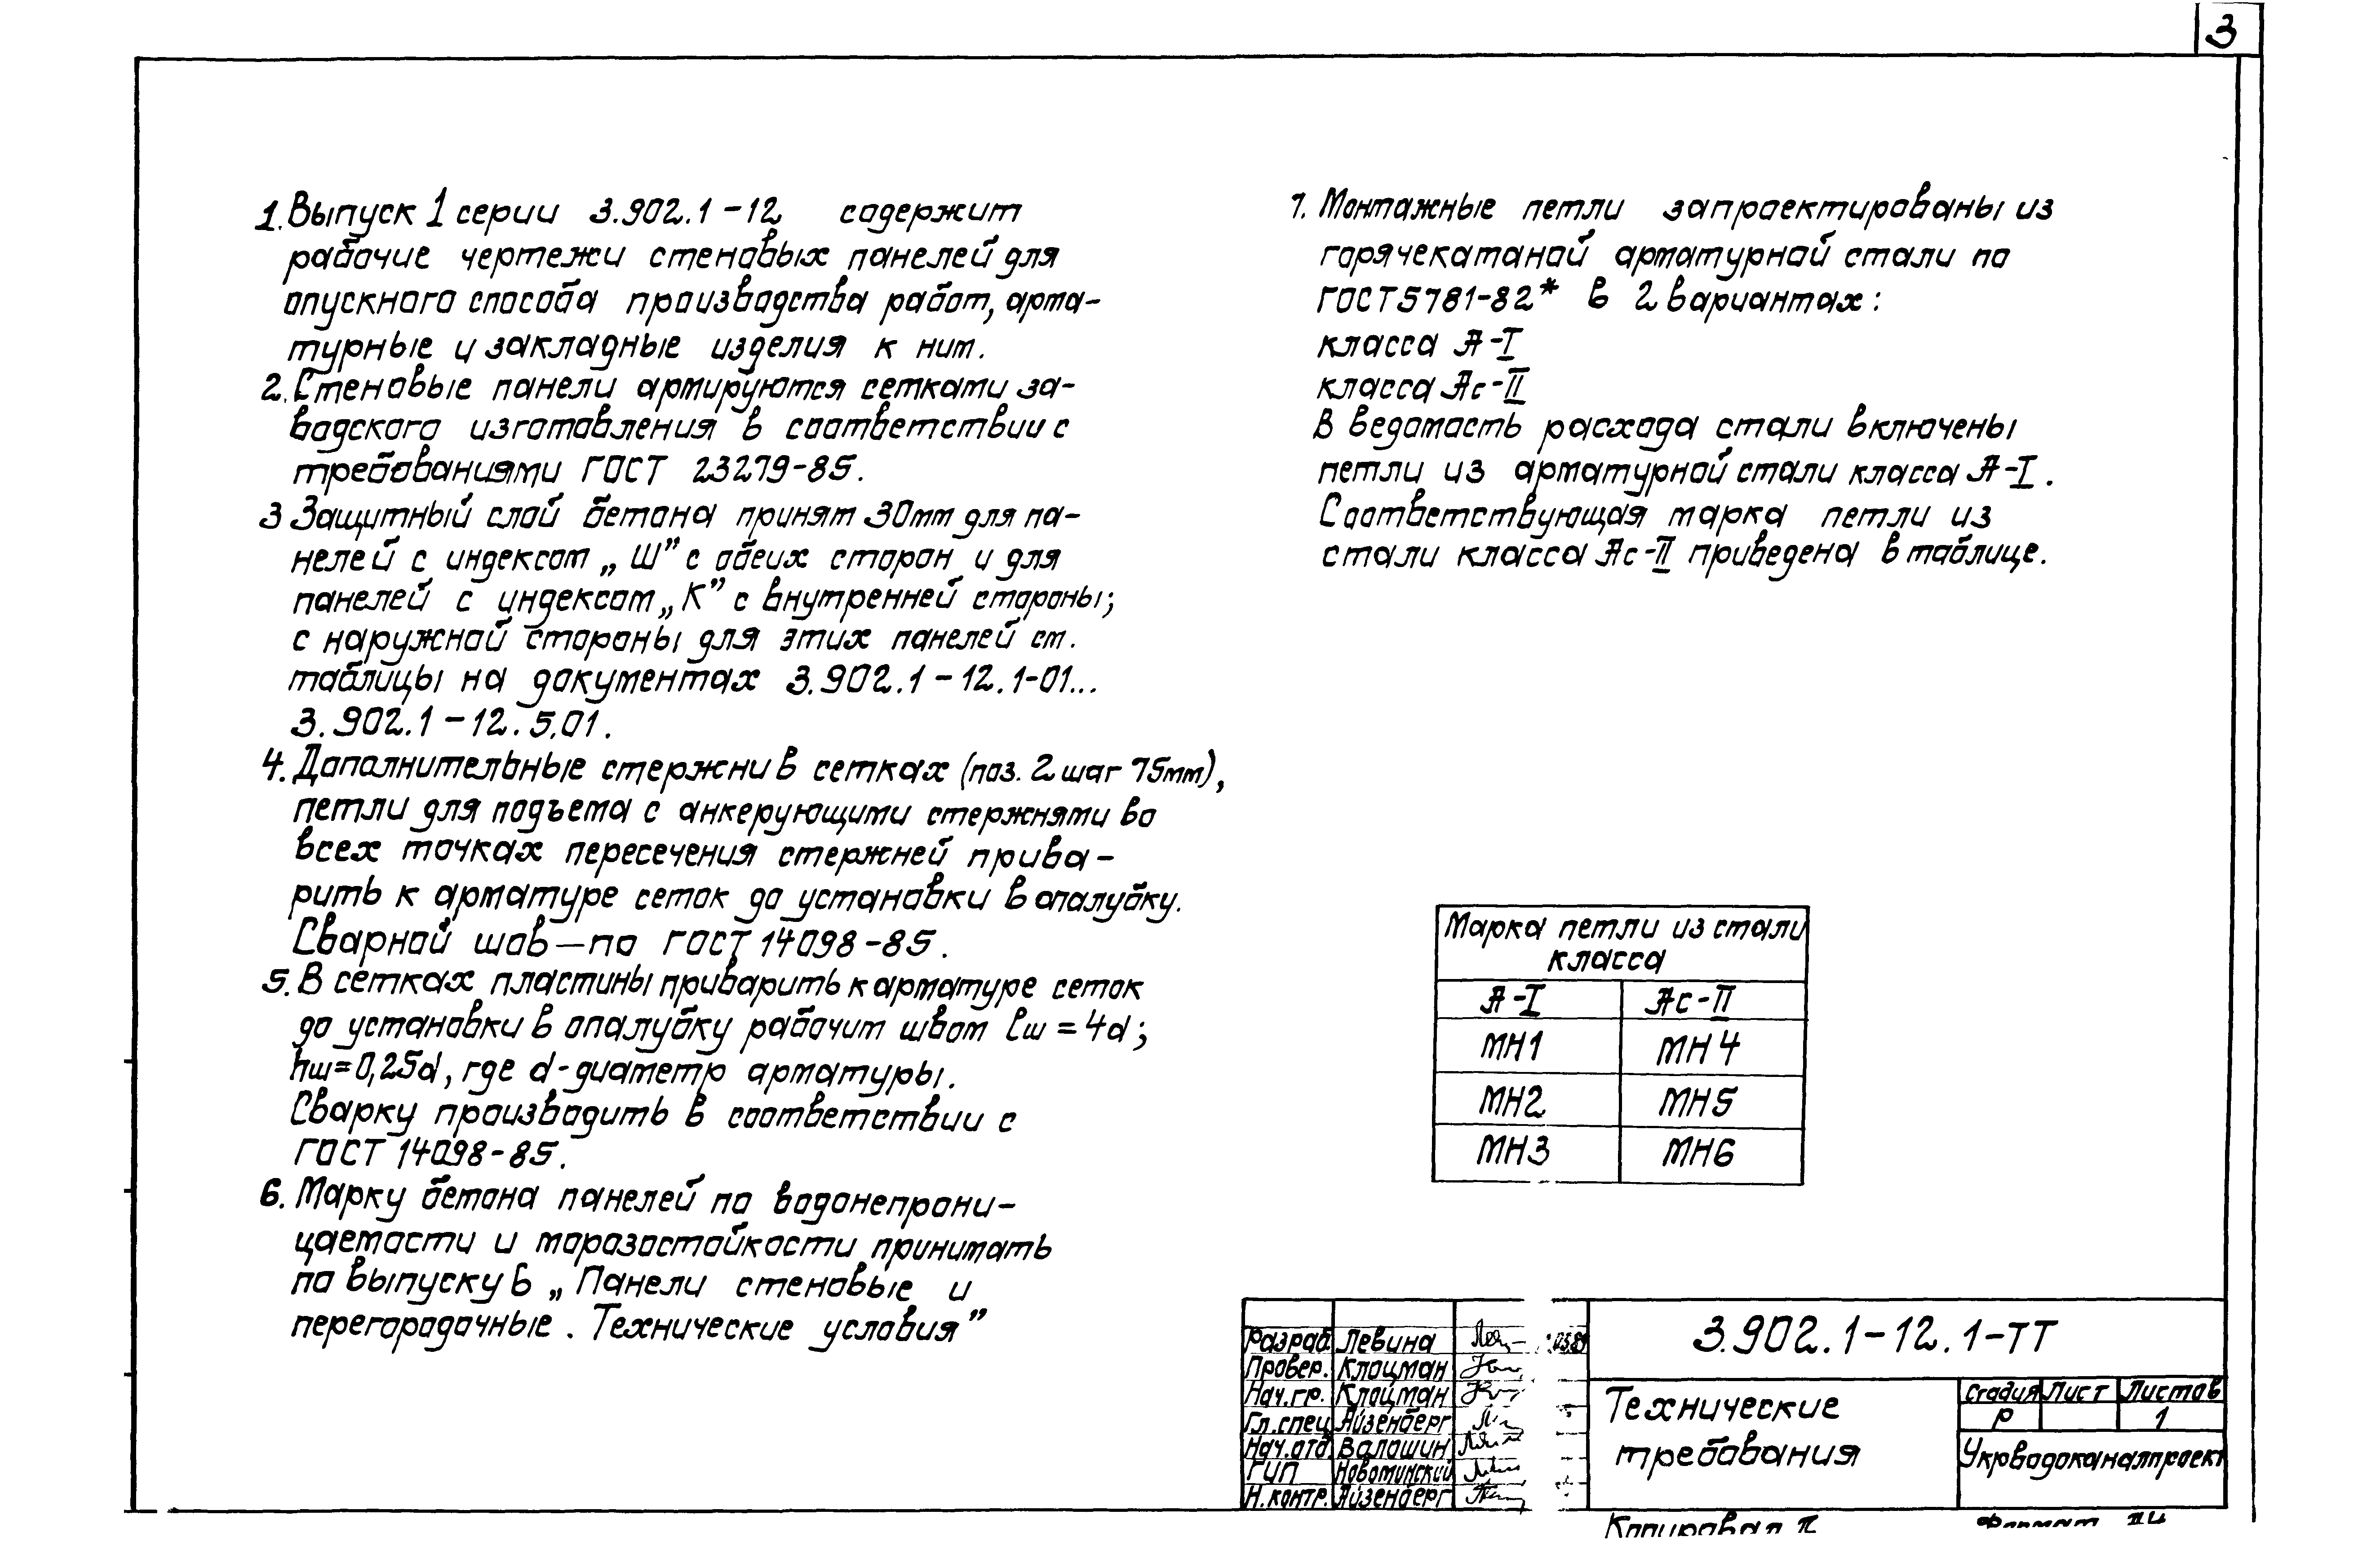 3
1. Выпуск 1 серии 3.902.1-12 содержит
рабочие чертежи стеновых панелей для
опускного способа производства работ, арма-
турные и закладные изделия к ним.
2. Стеновые панели армируются сетками за-
водского изготовления в соответствии с
требованиями ГОСТ 23279-85.
3 Защитный слой бетона принят 30мм для па-
нелей с индексом „Ш” с обеих сторон и для
панелей с индексом „К” с внутренней стороны;
с наружной стороны для этих панелей см.
таблицы на документах 3.902.1-12.1-01...
3.902.1-12.5.01.
4. Дополнительные стержни в сетках (поз. 2 шаг 75мм),
петли для подъема с анкерующими стержнями во
всех точках пересечения стержней прива-
рить к арматуре сеток до установки в опалубку.
Сварной шов — по ГОСТ 14098-85.
5. В сетках пластины приварить к арматуре сеток
до установки в опалубку рабочим швом lш = 4d;
hш=0,25d, где d-диаметр арматуры.
Сварку производить в соответствии с
ГОСТ 14098-85.
6. Марку бетона панелей по водонепрони-
цаемости и морозостойкости принимать
по выпуску 6 „Панели стеновые и
перегородочные. Технические условия”
7. Монтажные петли запроектированы из
горячекатаной арматурной стали по
ГОСТ 5781-82* в 2 вариантах:
класса А-I
класса Ас-II
В ведомость расхода стали включены
петли из арматурной стали класса А-I.
Соответствующая марка петли из
стали класса Ас-II приведена в таблице.
Марка петли из стали
класса
А-I Ас-II
МН1 МН4
МН2 МН5
МН3 МН6
Разраб. Левина
Провер. Клоцман
Нач.гр. Клоцман
Гл.спец Айзенберг
Нач.отд Валошин
ГИП Новоминский
Н.контр. Айзенберг
3.902.1-12.1-ТТ
Технические
требования
Стадия Лист Листов
Р 1
Укрводоканалпроект
Копировал
Формат